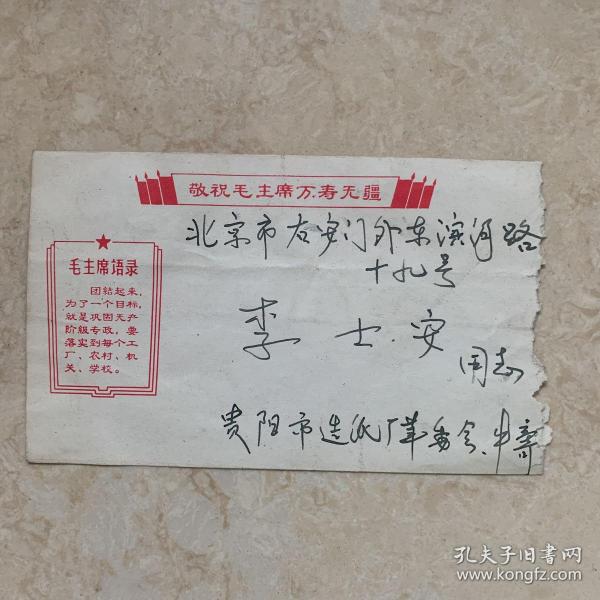 敬祝毛主席万寿无疆
北京市右安门外东滨河路
十九号
毛主席语录
团结起来,
为了一个目标,
就是巩固无产
阶级专政，要
落实到每个工
厂、农村、机
关、学校。
李士安
同志
贵阳市造纸厂革委会、
孔夫子旧书网
www.kongfz.com